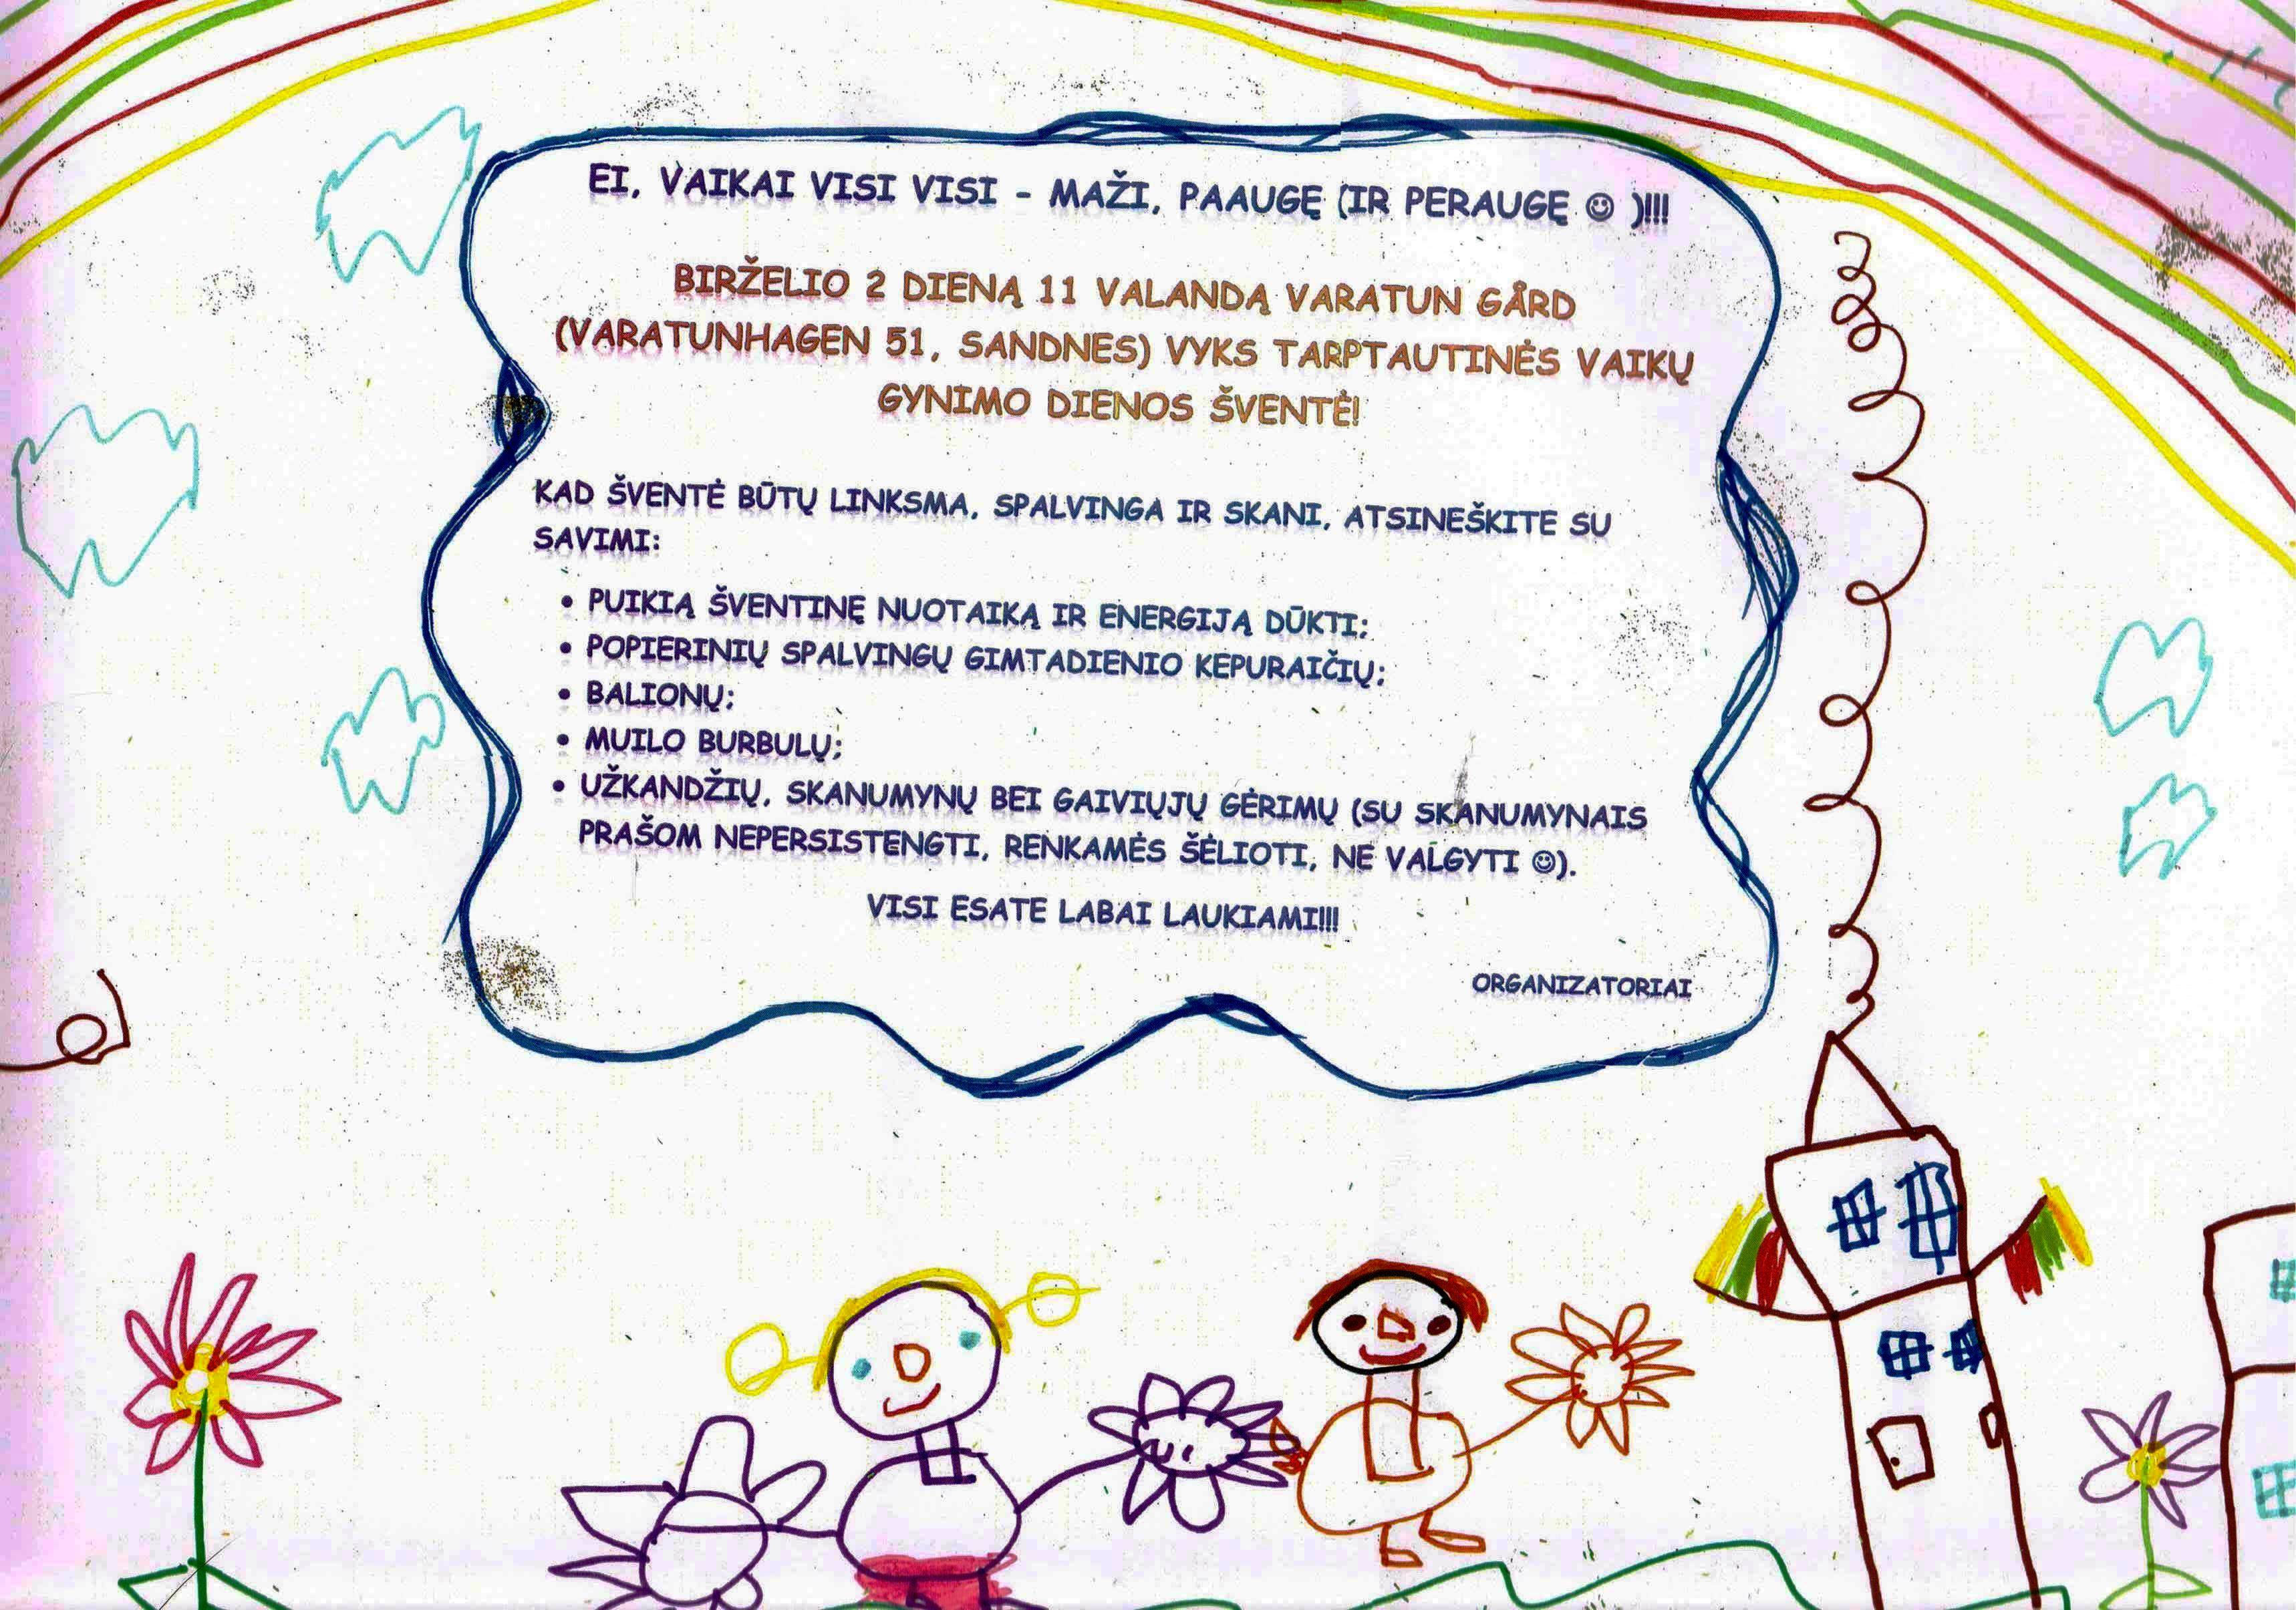 EI, VAIKAI VISI VISI - MAŽI, PAAUGĘ (IR PERAUGĘ ☺ )!!!
BIRŽELIO 2 DIENĄ 11 VALANDĄ VARATUN GÅRD
(VARATUNHAGEN 51, SANDNES) VYKS TARPTAUTINĖS VAIKŲ
GYNIMO DIENOS ŠVENTĖ!
KAD ŠVENTĖ BŪTŲ LINKSMA, SPALVINGA IR SKANI, ATSINEŠKITE SU
SAVIMI:
• PUIKIĄ ŠVENTINĘ NUOTAIKĄ IR ENERGIJĄ DŪKTI;
• POPIERINIŲ SPALVINGŲ GIMTADIENIO KEPURAIČIŲ;
• BALIONŲ;
• MUILO BURBULŲ;
• UŽKANDŽIŲ, SKANUMYNŲ BEI GAIVIŲJŲ GĖRIMŲ (SU SKANUMYNAIS
PRAŠOM NEPERSISTENGTI, RENKAMĖS ŠĖLIOTI, NE VALGYTI ☺).
VISI ESATE LABAI LAUKIAMI!!!
ORGANIZATORIAI